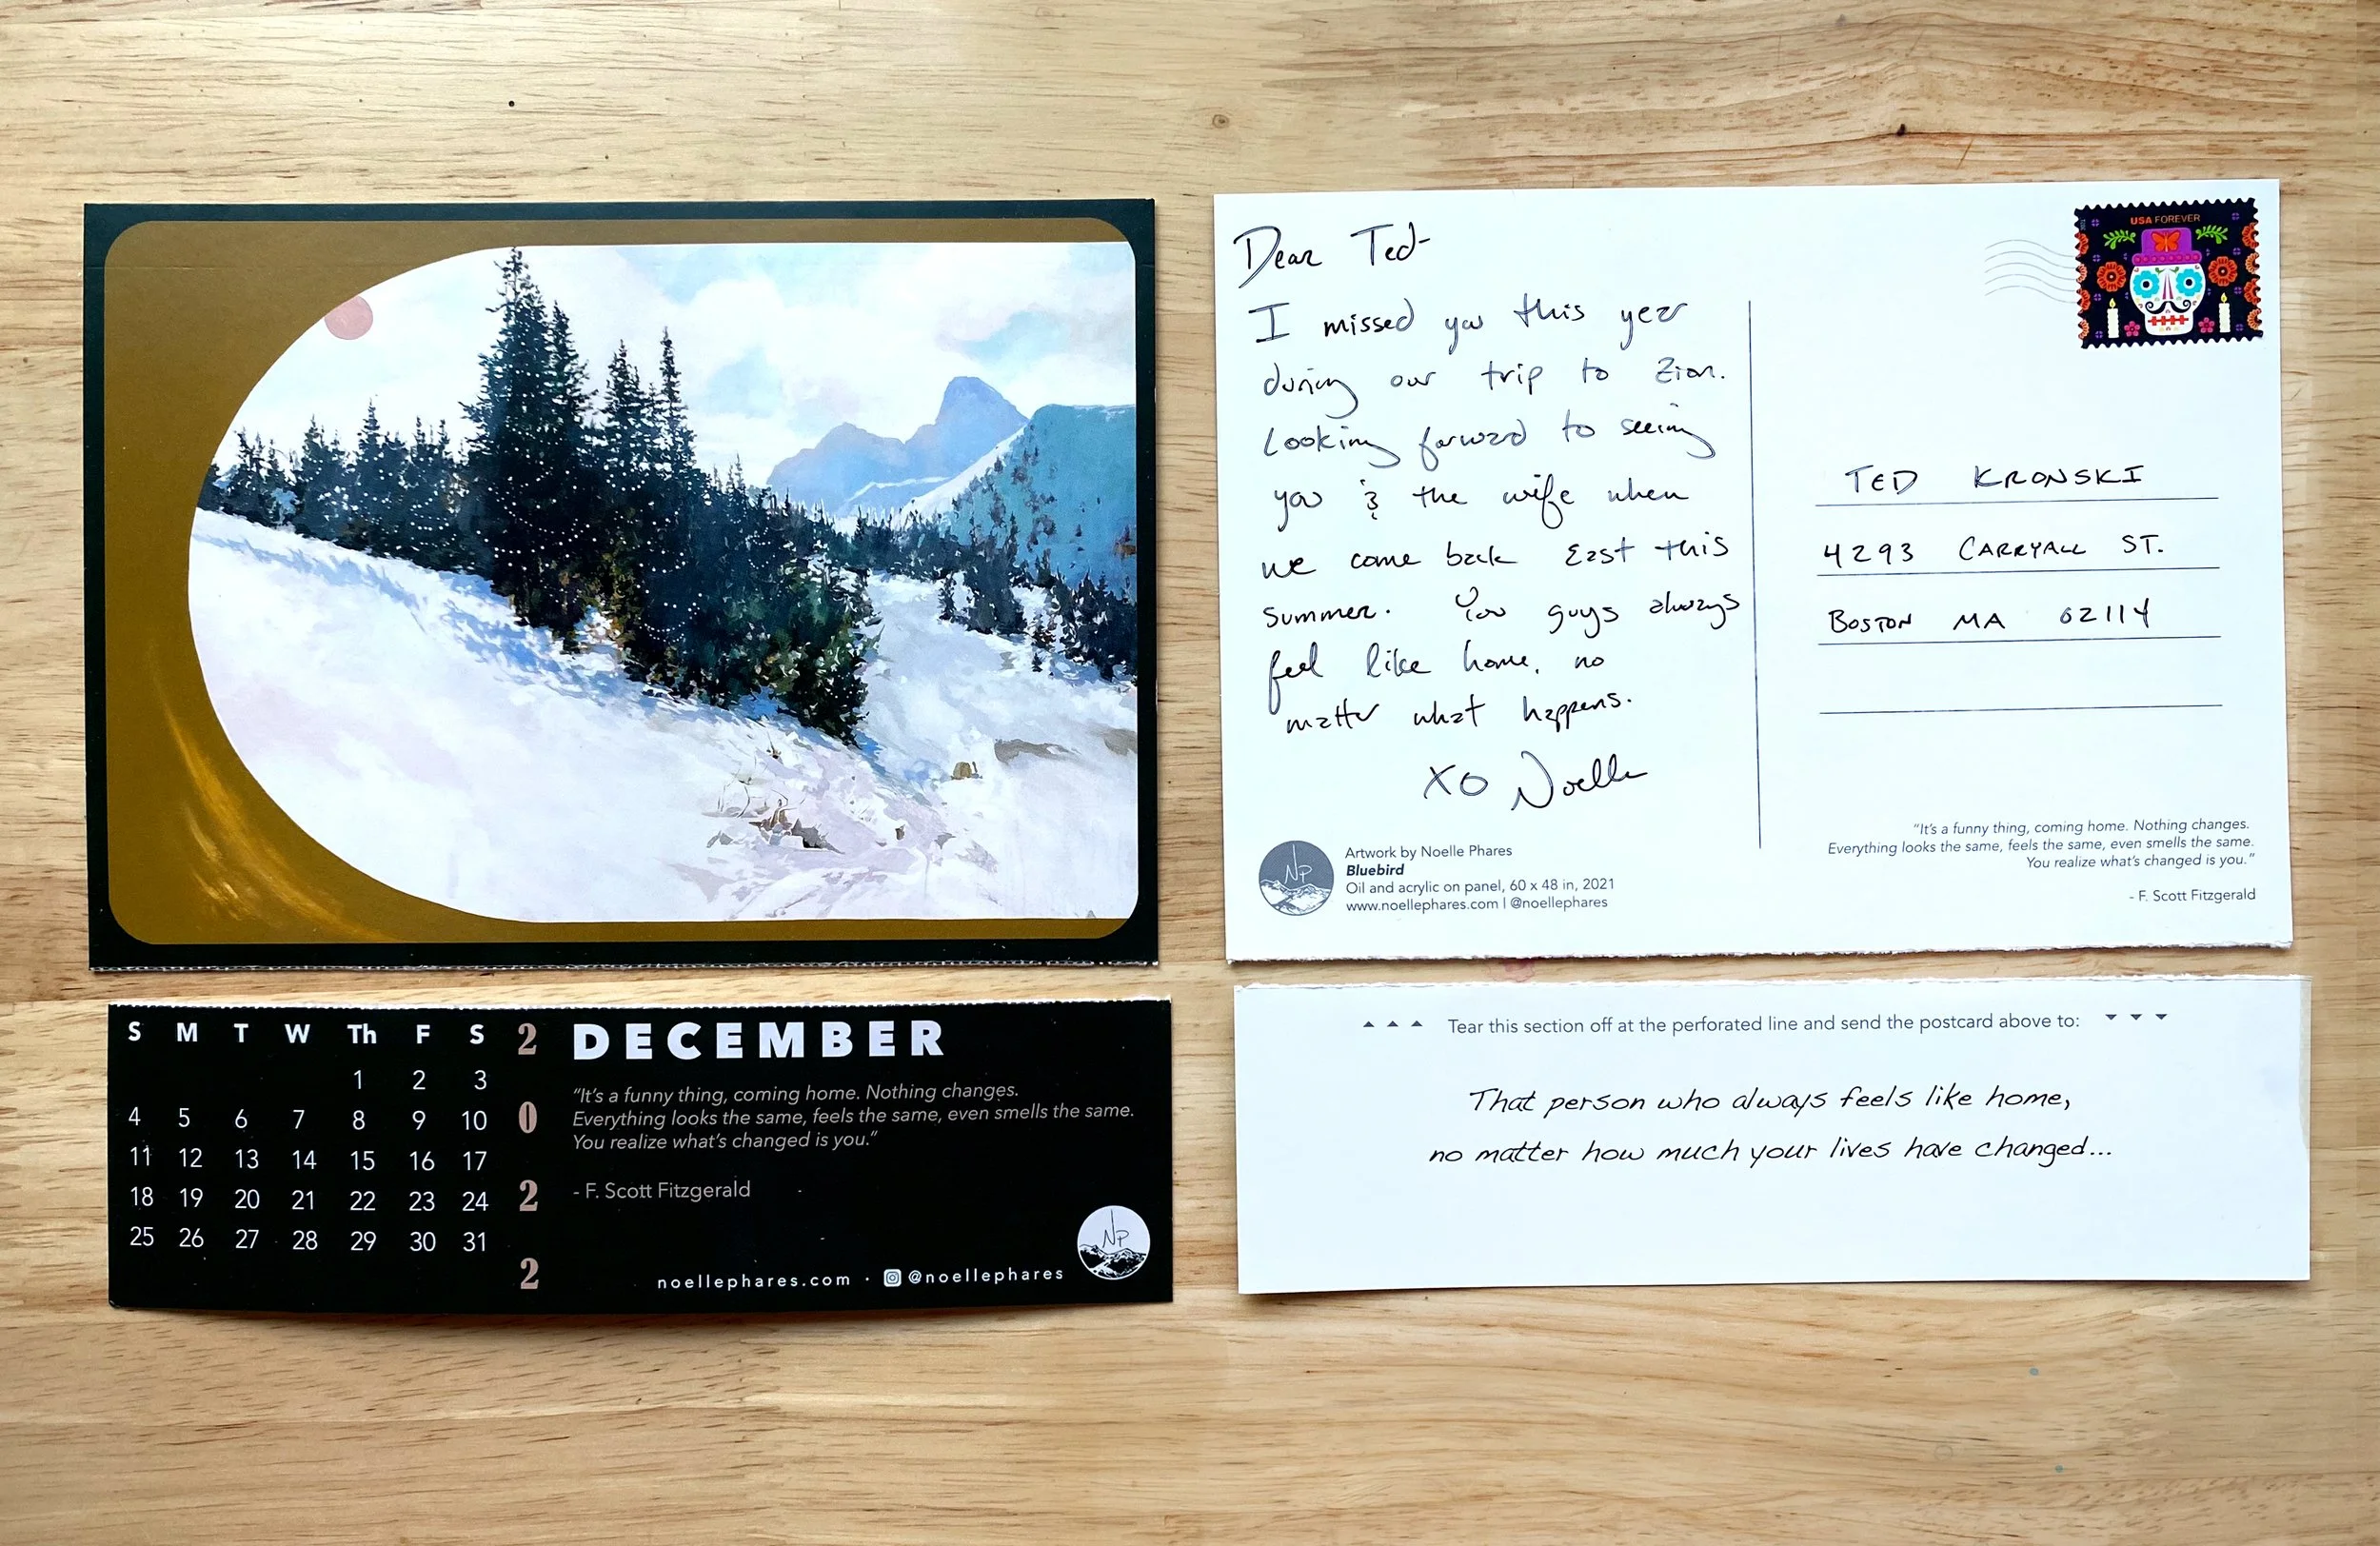 S M T W Th F S
1 2 3
4 5 6 7 8 9 10
11 12 13 14 15 16 17
18 19 20 21 22 23 24
25 26 27 28 29 30 31
2
0
2
2
DECEMBER
“It’s a funny thing, coming home. Nothing changes.
Everything looks the same, feels the same, even smells the same.
You realize what’s changed is you.”
- F. Scott Fitzgerald
NP
noellephares.com · @noellephares
Dear Ted-
I missed you this year
during our trip to Zion.
Looking forward to seeing
you & the wife when
we come back East this
summer. You guys always
feel like home, no
matter what happens.
XO Noelle
USA FOREVER
TED KRONSKI
4293 CARRYALL ST.
BOSTON MA 02114
NP
Artwork by Noelle Phares
Bluebird
Oil and acrylic on panel, 60 x 48 in, 2021
www.noellephares.com | @noellephares
“It’s a funny thing, coming home. Nothing changes.
Everything looks the same, feels the same, even smells the same.
You realize what’s changed is you.”
- F. Scott Fitzgerald
Tear this section off at the perforated line and send the postcard above to:
That person who always feels like home,
no matter how much your lives have changed...